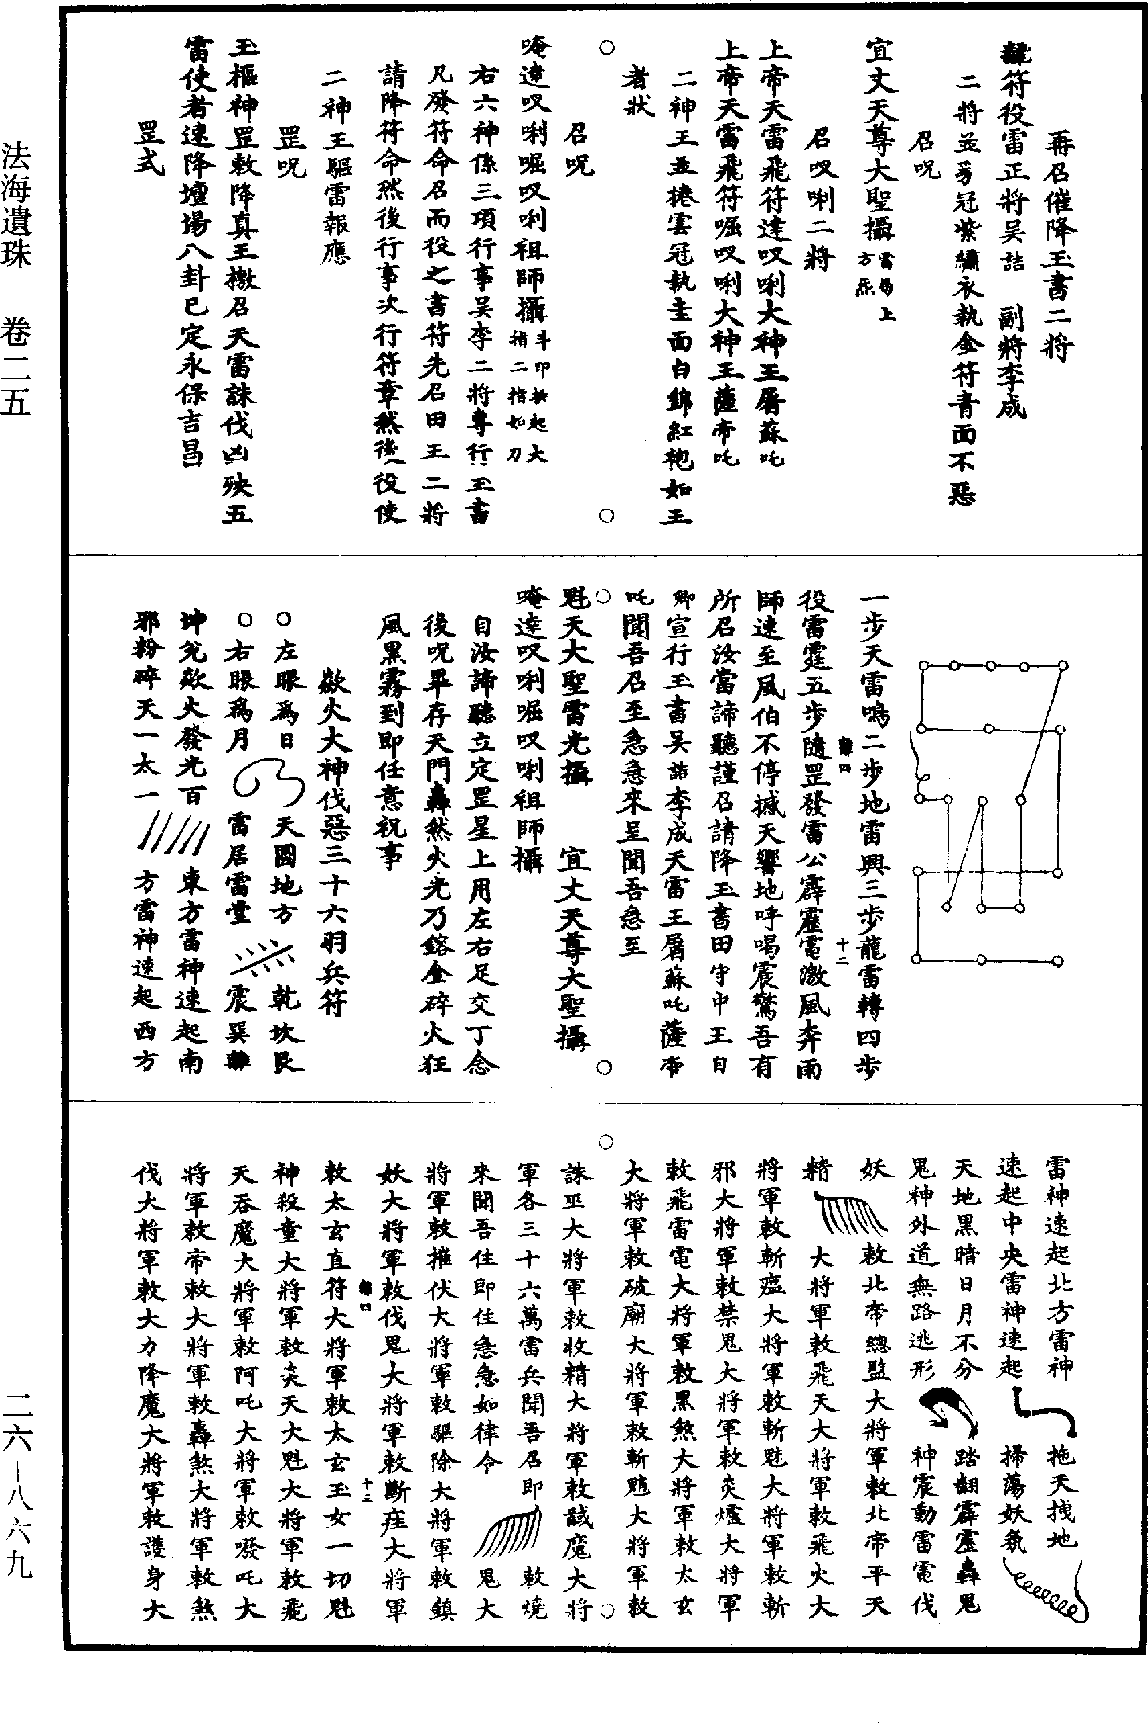 再召催降玉書二將
符役雷正將吳詰　副將李成
二將並豸冠紫繡衣執金符青面不惡
召咒
宜丈天尊大聖攝雷局上方炁
召叹唎二將
上帝天雷飛符達叹唎大神王屠蘇吒
上帝天雷飛符啒叹唎大神王薩帝吒
二神王並捲雲冠執圭面白錦紅袍如王
者狀
召咒
唵達叹唎啒叹唎祖師攝斗印挑起大指二指如刀
右六神係三項行事吳李二將專行玉書
凡發符命召而役之書符先召田王二將
請降符命然後行事次行符章然後役使
二神王驅雷報應
罡咒
玉樞神罡敕降真王檄召天雷誅伐凶殃五
雷使者速降壇場八卦已定永保吉昌
罡式
一步天雷鳴二步地雷興三步龍雷轉四步
役雷霆五步隨罡發雷公霹靂電激風奔雨
師速至風伯不停撼天響地呼喝震驚吾有
所召汝當諦聽謹召請降玉書田守中王日
卿宣行玉書吳詰李成天雷王屠蘇吒薩帝
吒聞吾召至急急來呈聞吾急至
魁天大聖雷光攝　宜丈天尊大聖攝
唵達叹唎啒叹唎祖師攝
自汝諦聽立定罡星上用左右足交丁念
後咒畢存天門轟然火光乃鎔金碎火狂
風黑霧到即任意祝事
歘火大神伐惡三十六羽兵符
○左眼為日　天圓地方　乾坎艮
○右眼為月　雷居雷堂　震巽離
坤兌歘火發光百　東方雷神速起南
邪粉碎天一太一　方雷神速起西方
雷神速起北方雷神　拖天找地
速起中央雷神速起　掃蕩妖氛
天地黑暗日月不分　踏翻霹靂轟鬼
鬼神外道無路逃形　神震動雷電伐
妖　敕北帝總監大將軍敕北帝平天
精　大將軍敕飛天大將軍敕飛火大
將軍敕斬瘟大將軍敕斬魅大將軍敕斬
邪大將軍敕禁鬼大將軍敕炎爐大將軍
敕飛雷電大將軍敕黑煞大將軍敕太玄
大將軍敕破廟大將軍敕斬魈大將軍敕
誅巫大將軍敕收精大將軍敕馘魔大將
軍各三十六萬雷兵聞吾召即　敕燒
來聞吾住即住急急如律令　鬼大
將軍敕摧伏大將軍敕驅除大將軍敕鎮
妖大將軍敕伐鬼大將軍敕斷疰大將軍
敕太玄直符大將軍敕太玄玉女一切魁
神殺童大將軍敕炎天大魁大將軍敕飛
天吞魔大將軍敕阿吒大將軍敕嚘吒大
將軍敕帝敕大將軍敕轟煞大將軍敕煞
伐大將軍敕大力降魔大將軍敕護身大
法海遺珠　卷二五
二六—八六九